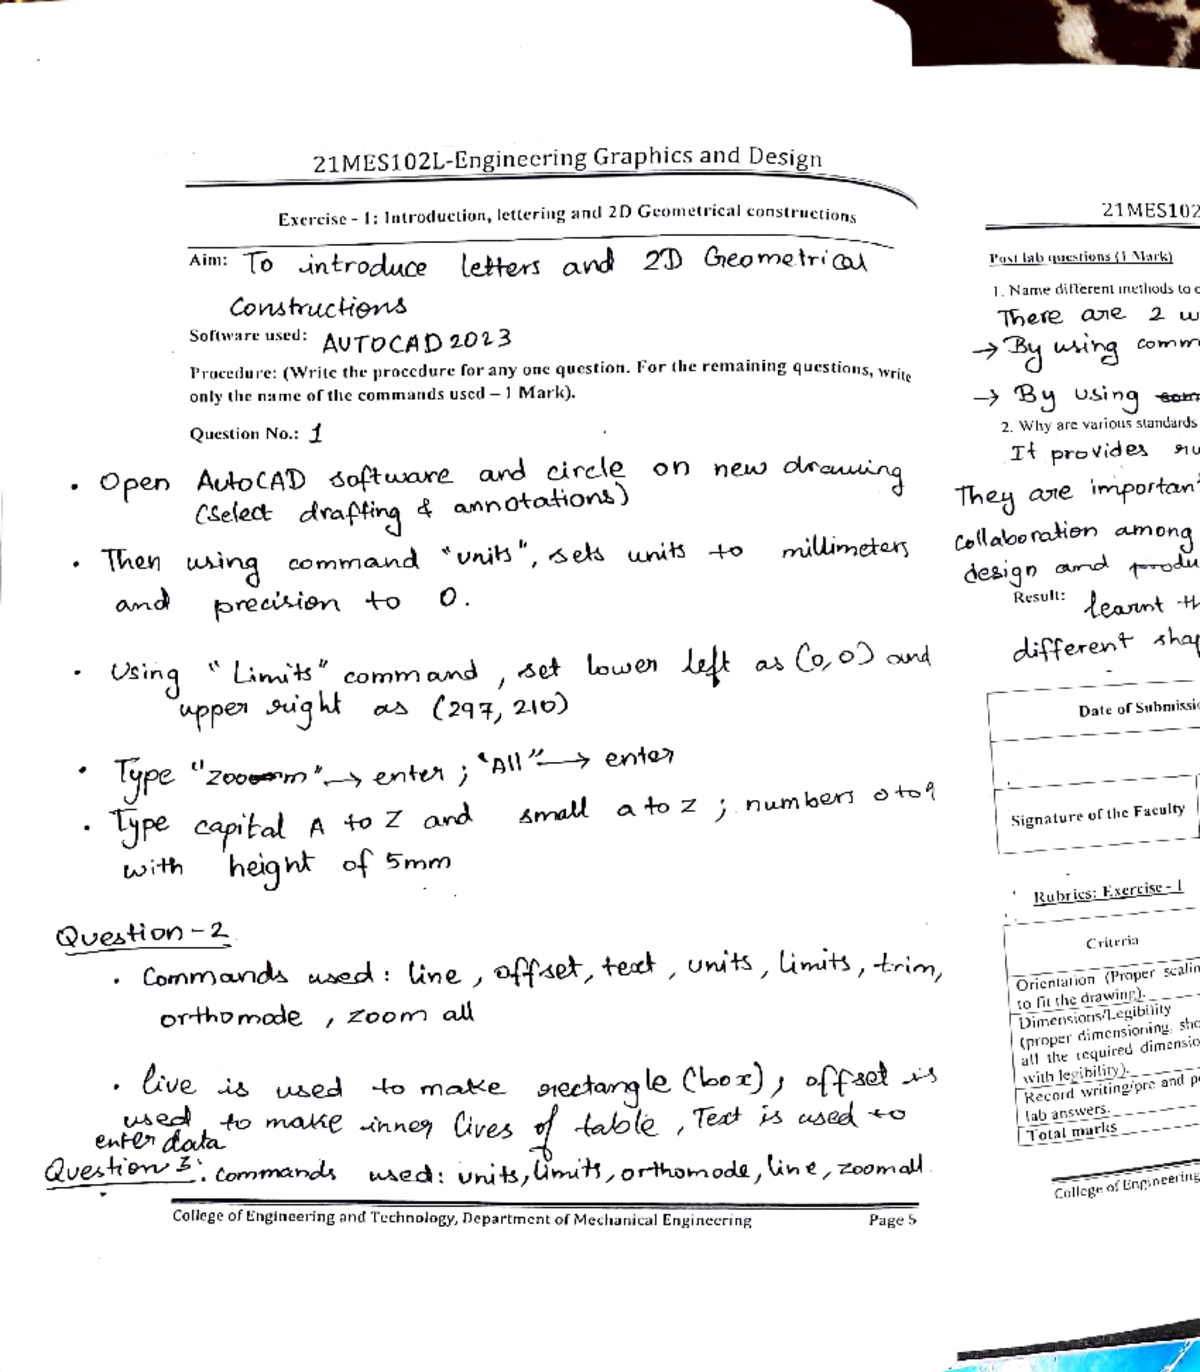 21MES102L-Engineering Graphics and Design
Exercise - 1: Introduction, lettering and 2D Geometrical constructions
Aim: To introduce letters and 2D Geometrical
Constructions
Software used: AUTOCAD 2023
Procedure: (Write the procedure for any one question. For the remaining questions, write
only the name of the commands used – 1 Mark).
Question No.: 1
• Open AutoCAD software and circle on new drawing
(select drafting & annotations)
• Then using command "units", sets units to millimeters
and precision to 0.
• Using "Limits" command, set lower left as (0,0) and
upper right as (297, 210)
• Type "zoom" → enter ; "All" → enter
• Type capital A to Z and small a to z ; numbers 0 to 9
with height of 5mm
Question - 2
• Commands used: line, offset, text, units, limits, trim,
orthomode, zoom all
• live is used to make rectangle (box), offset is
used to make inner lives of table, Text is used to
enter data
Question 3: commands used: units, limits, orthomode, line, zoom all.
College of Engineering and Technology, Department of Mechanical Engineering Page 5
21MES102
Post lab questions (1 Mark)
1. Name different methods to
There are 2
→ By using comm
→ By using
2. Why are various standards
It provides
They are important
collaboration among
design and produ
Result: learnt
different shap
Date of Submissi
Signature of the Faculty
Rubrics: Exercise - 1
Criteria
Orientation (Proper scalin
to fit the drawing).
Dimensions/Legibility
(proper dimensioning, sho
all the required dimensio
with legibility).
Record writing/pre and p
lab answers.
Total marks
College of Engineering